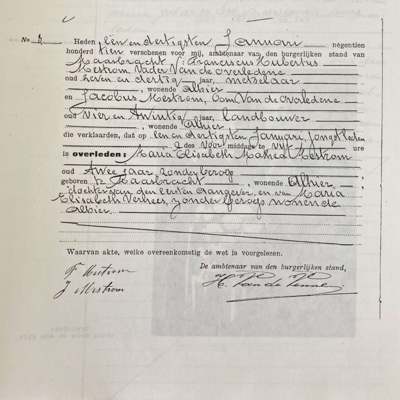 No 6 Heden een en dertigsten Januari negentien
honderd tien verschenen voor mij, ambtenaar van den burgerlijken stand van
Maasbracht: Franciscus Hubertus
Mestrom Vader Van de overledene
oud zeven en dertig jaar, metselaar
, wonende alhier
en Jacobus Mestrom, Oom Van de Ovaledene
oud Vier en twintig jaar, landbouwer
, wonende alhier
die verklaarden, dat op een en dertigsten Januari, Jongstleden
en des Voor middags te vijf ure
is overleden: Maria Elisabeth Mestrom
oud twee jaar, zonder beroep
geboren te Maasbracht, wonende alhier
dochter van den eersten aangever, en van Maria
Elisabeth Verhees, zonder beroep wonende
alhier.
Waarvan akte, welke overeenkomstig de wet is voorgelezen.
De ambtenaar van den burgerlijken stand,
F Mestrom
J Mestrom